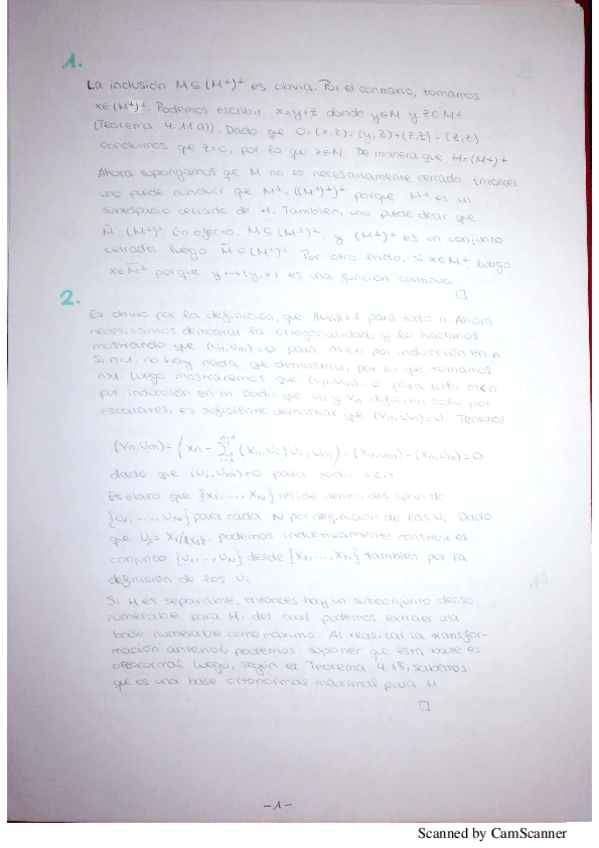 1.
La inclusión M ⊆ (M⊥)⊥ es obvia. Por el contrario, tomamos
x∈(M⊥)⊥. Podemos escribir x=y+z donde y∈M y z∈M⊥
(Teorema 4.11(a)). Dado que 0=(x,z)=(y,z)+(z,z)=(z,z)
concluimos que z=0, por lo que x∈M. De manera que M=(M⊥)⊥
Ahora supongamos que M no es necesariamente cerrado. Entonces
uno puede concluir que M⊥=((M⊥)⊥)⊥ porque M⊥ es un
subespacio cerrado de H. También, uno puede decir que
M̄=(M⊥)⊥ En efecto, M⊆(M⊥)⊥, y (M⊥)⊥ es un conjunto
cerrado, luego M̄⊆(M⊥)⊥. Por otro lado, si x∈M⊥, luego
x∈M̄⊥ porque y↦(y,x) es una función continua.
□
2.
Es obvio por la definición, que ||un||=1 para todo n Ahora
necesitamos demostrar la ortogonalidad, y lo hacemos
mostrando que (un,um)=0 para m<n por inducción en n
Si n=1, no hay nada que demostrar, por lo que tomamos
n>1. Luego mostraremos que (un,um)=0 para todo m<n
por inducción en m. Dado que un y vn difieren solo por
escalares, es suficiente demostrar que (vn,um)=0. Tenemos
(vn,um) = (xn - Σ (xn,ui)ui,um) = (xn,um)-(xn,um)=0
dado que (ui,um)=0 para todo i<n
Es claro que {x1,...,xN} reside dentro del span de
{u1,...,uN} para cada N por definición de las ui. Dado
que u1= x1/||x1||, podemos inductivamente construir el
conjunto {u1,...,uN} desde {x1,...,xN} también por la
definición de los ui
Si H es separable, entonces hay un subconjunto denso
numerable para H, del cual podemos extraer una
base numerable como máximo. Al realizar la transfor-
mación anterior, podemos suponer que esta base es
ortonormal Luego, según el Teorema 4.18, sabemos
que es una base ortonormal maximal para H
□
-1-
Scanned by CamScanner